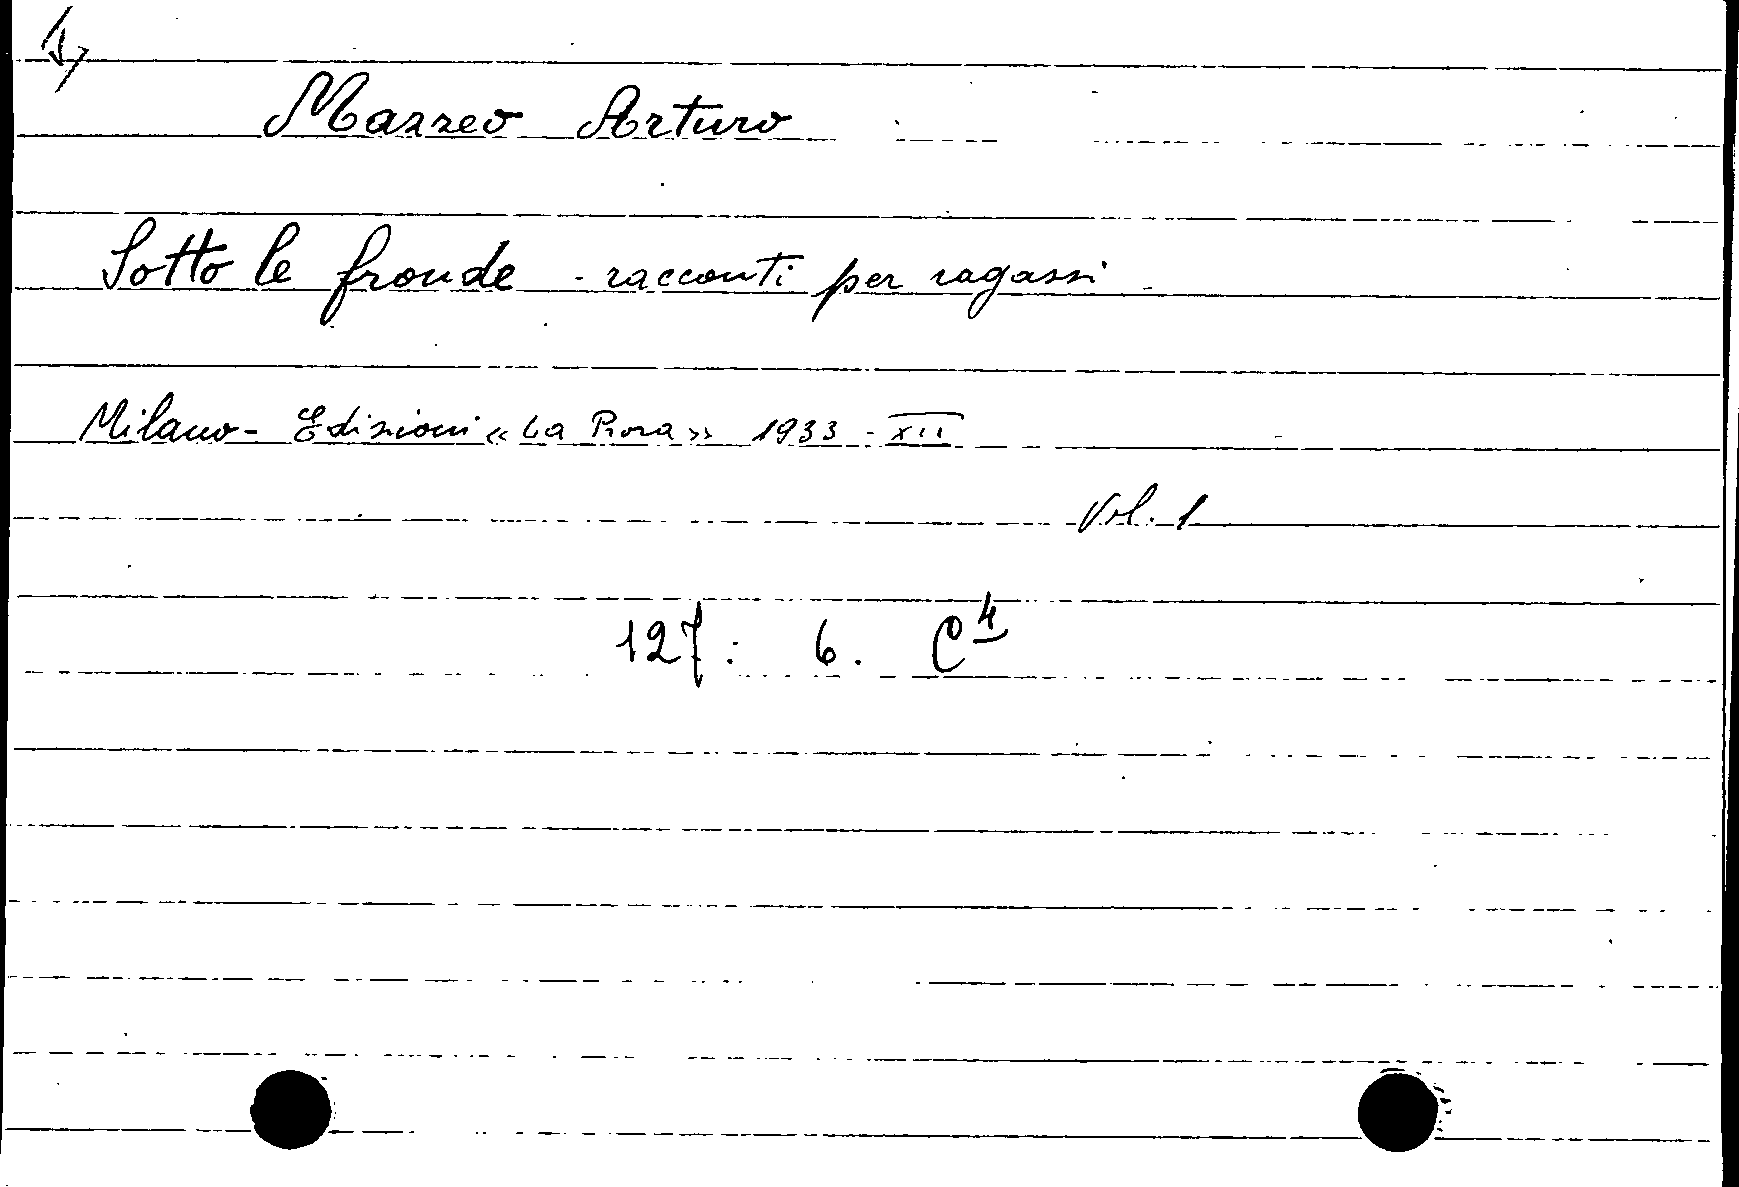 Mazzeo Arturo
Sotto le fronde - racconti per ragazzi
Milano - Edizioni « La Prora » 1933 - XII
Vol. 1
127. 6. C 4